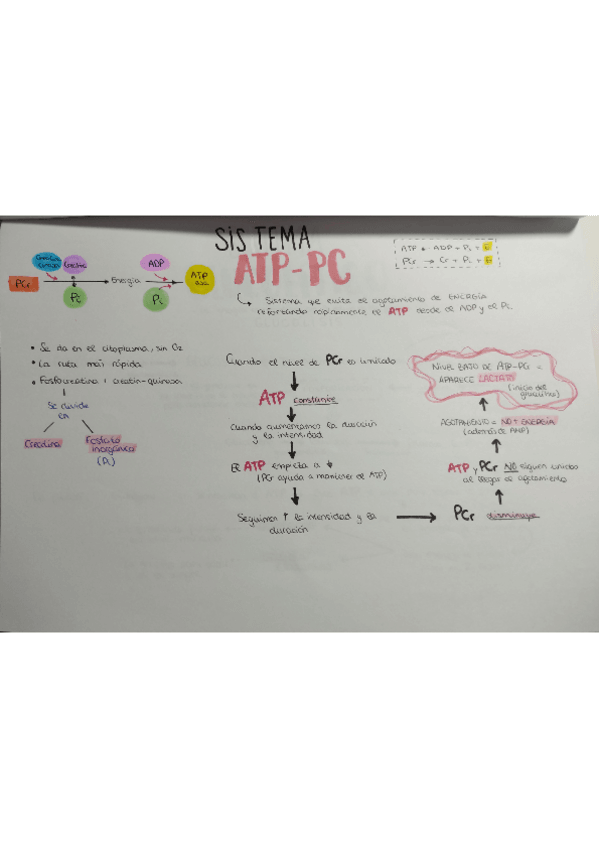 SISTEMA
ATP-PC
ATP → ADP + Pi + E
PCr → Cr + Pi + E
Creatina
Creatina
ADP
PCr
Energía
ATP
Pi
Pi
↳ Sistema que evita el agotamiento de ENERGÍA
reformando rápidamente el ATP desde el ADP y el Pi.
• Se da en el citoplasma, sin O2
• La ruta más rápida
• Fosfocreatina + creatin-quinasa
Se divide
en
Creatina
Fosfato
inorgánico
(Pi)
Cuando el nivel de PCr es limitado
ATP constante
Cuando aumentamos la duración
y la intensidad
El ATP empieza a ↓
(PCr ayuda a mantener el ATP)
Seguimos ↑ la intensidad y la
duración
PCr disminuye
ATP y PCr NO siguen unidos
al llegar al agotamiento
AGOTAMIENTO = NO ENERGÍA
(además de AMP)
NIVEL BAJO DE ATP-PCr =
APARECE LACTATO
(inicio del
glucolítico)